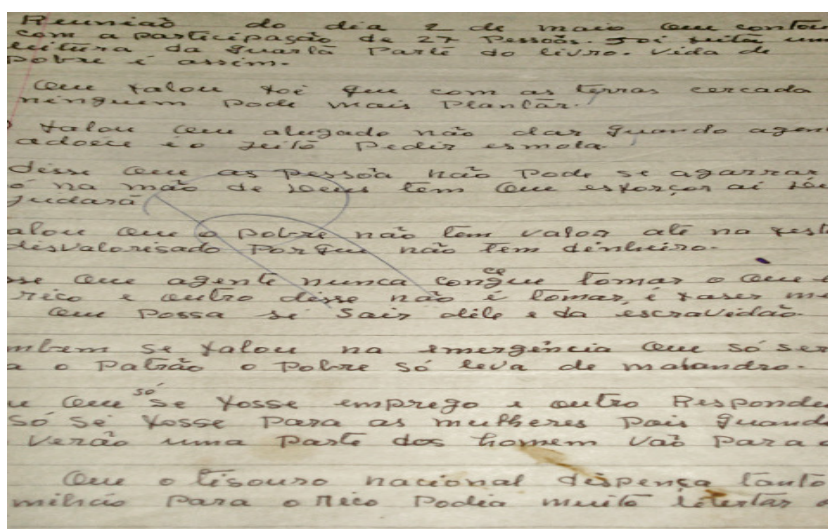 Reunião do dia 2 de maio que contou
com a participação de 27 Pessôas. Foi feita um
leitura da quarta Parte do livro. Vida de
Pobre é assim.
Que falou foi que com as terras cercada
ninguem Pode mais Plantar.
falou que alugado não dar quando agent
adoece é o jeito Pedir esmola
disse que as pessôa não Pode se agarrar
só na mão de Deus tem que esforçar ai
judará
alou que o pobre não tem valor até na
disvalorisado Porque não tem dinheiro.
se que agente nunca consgue tomar o que
rico e outro disse não é tomar, é faser
que Possa se Sair dele e da escravidão.
mbem se falou na emergência que só ser
a o Patrão o Pobre só leva de malandro.
que só se fosse emprego e outro Responde
só se fosse Para as mulheres Pois quando
verão uma Parte dos homem vão Para
Que o tisouro nacional dispença tanto
milhão Para o Rico Podia muito